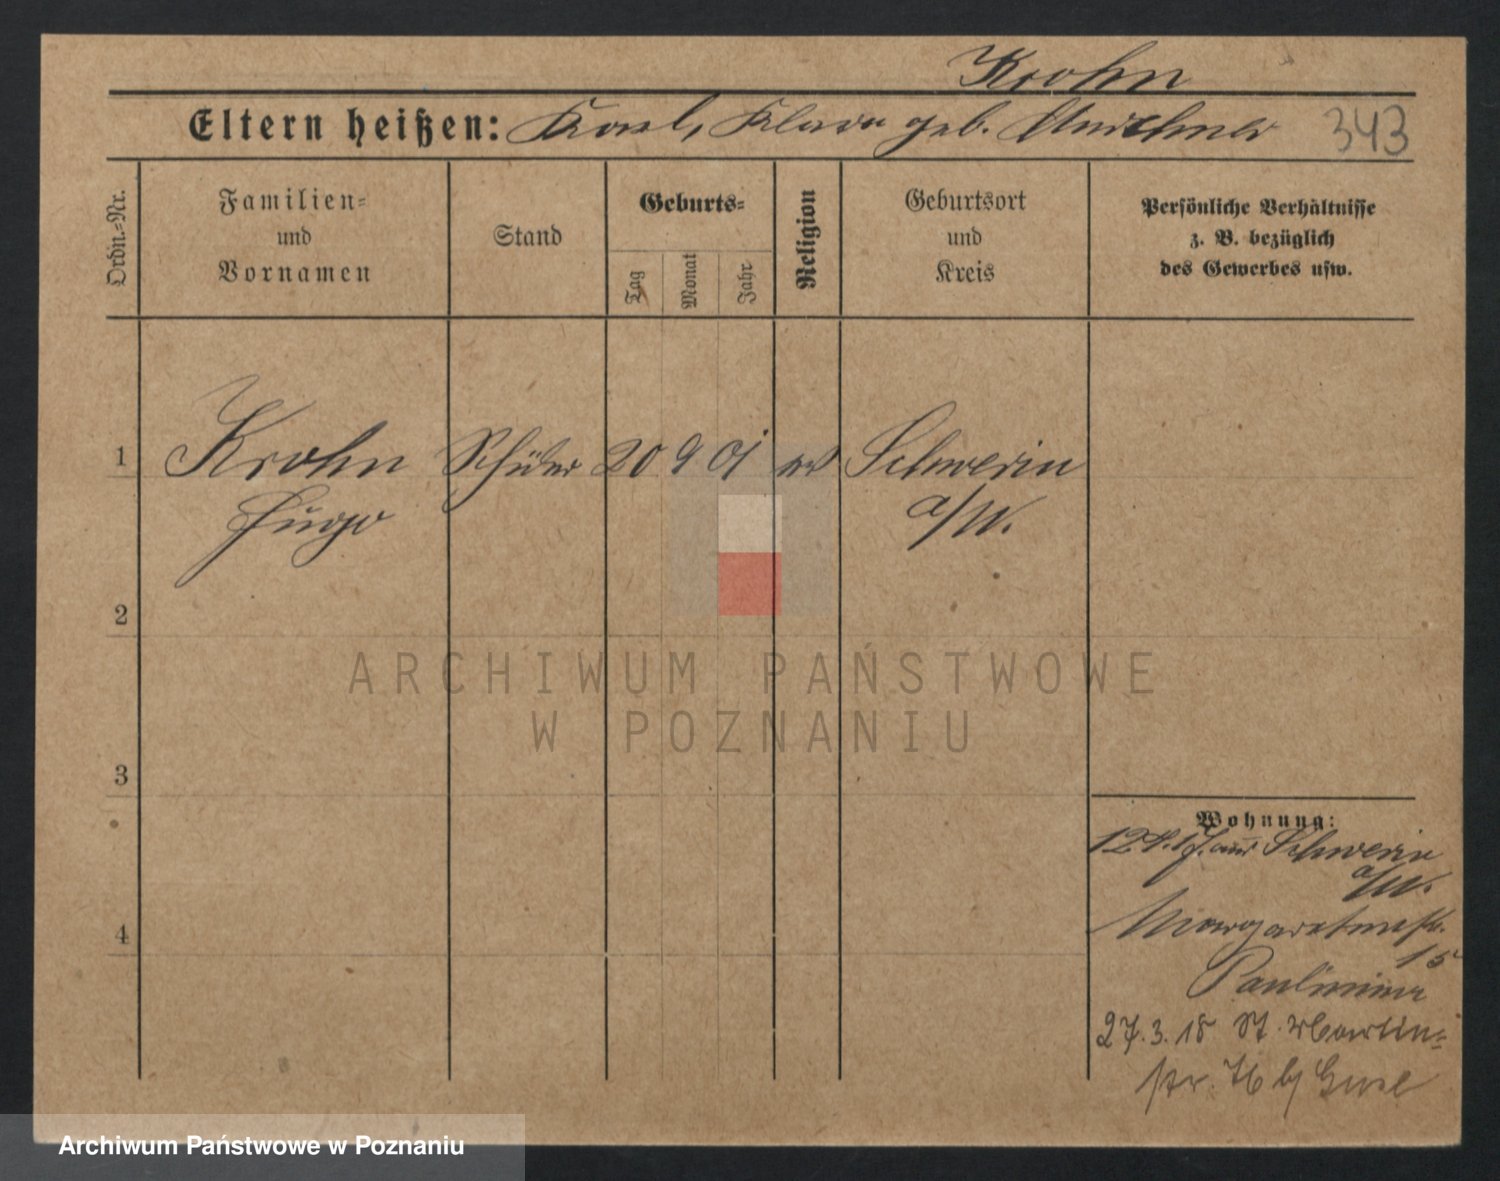 Krohn
Eltern heißen: Karl, Klara geb.
343
Ordn.-Nr.
Familien-
und
Vornamen
Stand
Geburts-
Tag
Monat
Jahr
Religion
Geburtsort
und
Kreis
Persönliche Verhältnisse
z. B. bezüglich
des Gewerbes usw.
1 Krohn Schüler 20 9 01 ev Schwerin
Hugo a/W.
2
ARCHIWUM PAŃSTWOWE
W POZNANIU
3
4
Wohnung:
aus Schwerin
a/W.
Margaretenstr.
15
27.3.18 St. Martin-
str.
Archiwum Państwowe w Poznaniu